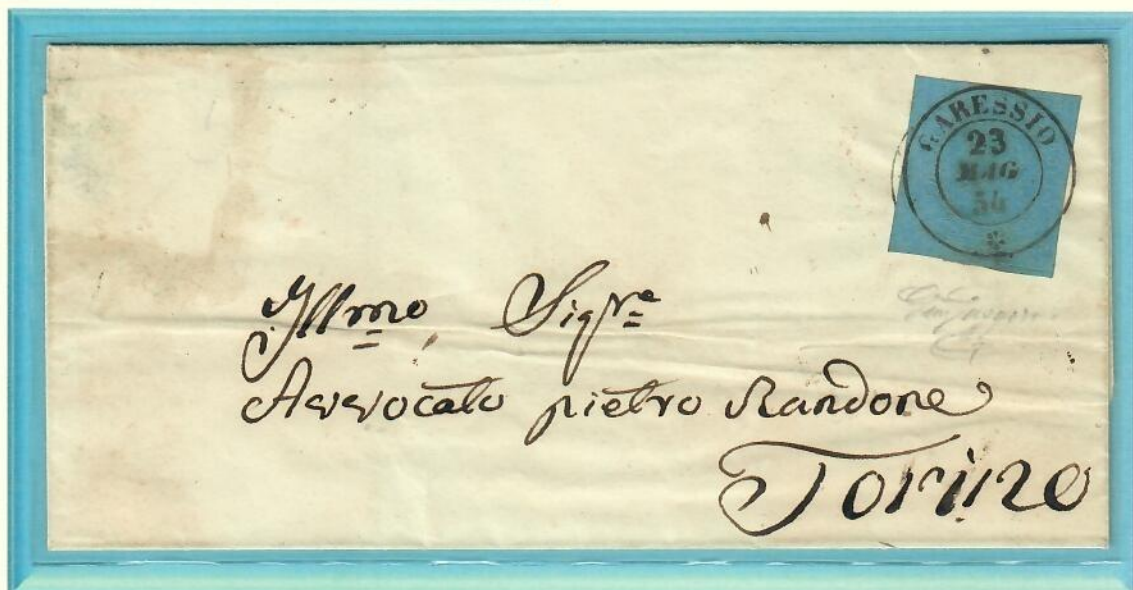 GARESSIO
23
MAG
54
Illmo Sigre
Avvocato pietro Randone
Torino